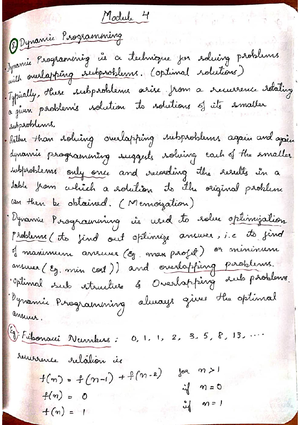 Module 4
Dynamic Programming
Dynamic Programming is a technique for solving problems
with overlapping subproblems. (optimal solutions)
Typically, these subproblems arise from a recurrence relating
a given problem's solution to solutions of its smaller
subproblems.
Rather than solving overlapping subproblems again and again
dynamic programming suggests solving each of the smaller
subproblems only once and recording the results in a
table from which a solution to the original problem
can then be obtained. (Memoization)
• Dynamic Programming is used to solve optimization
problems (to find out optimize answer, i.e to find
of maximum answer (eg. max profit) or minimum
answer (eg. min cost)) and overlapping problems.
• Optimal sub structure & Overlapping sub problems
• Dynamic Programming always gives the optimal
answer.
eg Fibonacci Numbers : 0, 1, 1, 2, 3, 5, 8, 13, ....
recurrence relation is
f(n) = f(n-1) + f(n-2) for n>1
f(n) = 0 if n=0
f(n) = 1 if n=1